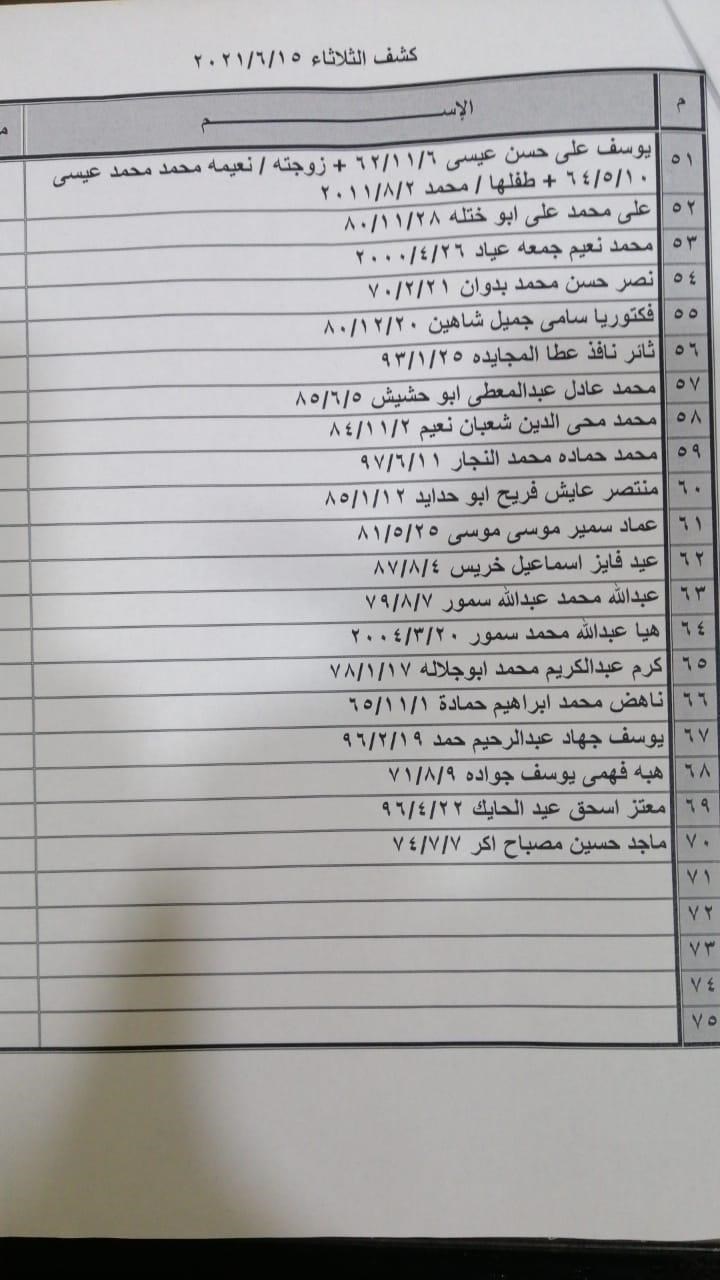 كشف الثلاثاء ٢٠٢١/٦/١٥
م الإســـــــــــــــم
٥١ يوسف على حسن عيسى ٦٢/١١/٦ + زوجته / نعيمه محمد محمد عيسى
٦٤/٥/١٠ + طفلها / محمد ٢٠١١/٨/٢
٥٢ على محمد على ابو ختله ٨٠/١١/٢٨
٥٣ محمد نعيم جمعه عياد ٢٠٠٠/٤/٢٦
٥٤ نصر حسن محمد بدوان ٧٠/٢/٢١
٥٥ فكتوريا سامى جميل شاهين ٨٠/١٢/٢٠
٥٦ ثائر نافذ عطا المجايده ٩٣/١/٢٥
٥٧ محمد عادل عبدالمعطى ابو حشيش ٨٥/٦/٥
٥٨ محمد محى الدين شعبان نعيم ٨٤/١١/٢
٥٩ محمد حماده محمد النجار ٩٧/٦/١١
٦٠ منتصر عايش فريح ابو حدايد ٨٥/١/١٢
٦١ عماد سمير موسى موسى ٨١/٥/٢٥
٦٢ عيد فايز اسماعيل خريس ٨٧/٨/٤
٦٣ عبدالله محمد عبدالله سمور ٧٩/٨/٧
٦٤ هيا عبدالله محمد سمور ٢٠٠٤/٣/٢٠
٦٥ كرم عبدالكريم محمد ابوجلاله ٧٨/١/١٧
٦٦ ناهض محمد ابراهيم حمادة ٦٥/١١/١
٦٧ يوسف جهاد عبدالرحيم حمد ٩٦/٢/١٩
٦٨ هبه فهمى يوسف جواده ٧١/٨/٩
٦٩ معتز اسحق عيد الحايك ٩٦/٤/٢٢
٧٠ ماجد حسين مصباح اكر ٧٤/٧/٧
٧١
٧٢
٧٣
٧٤
٧٥